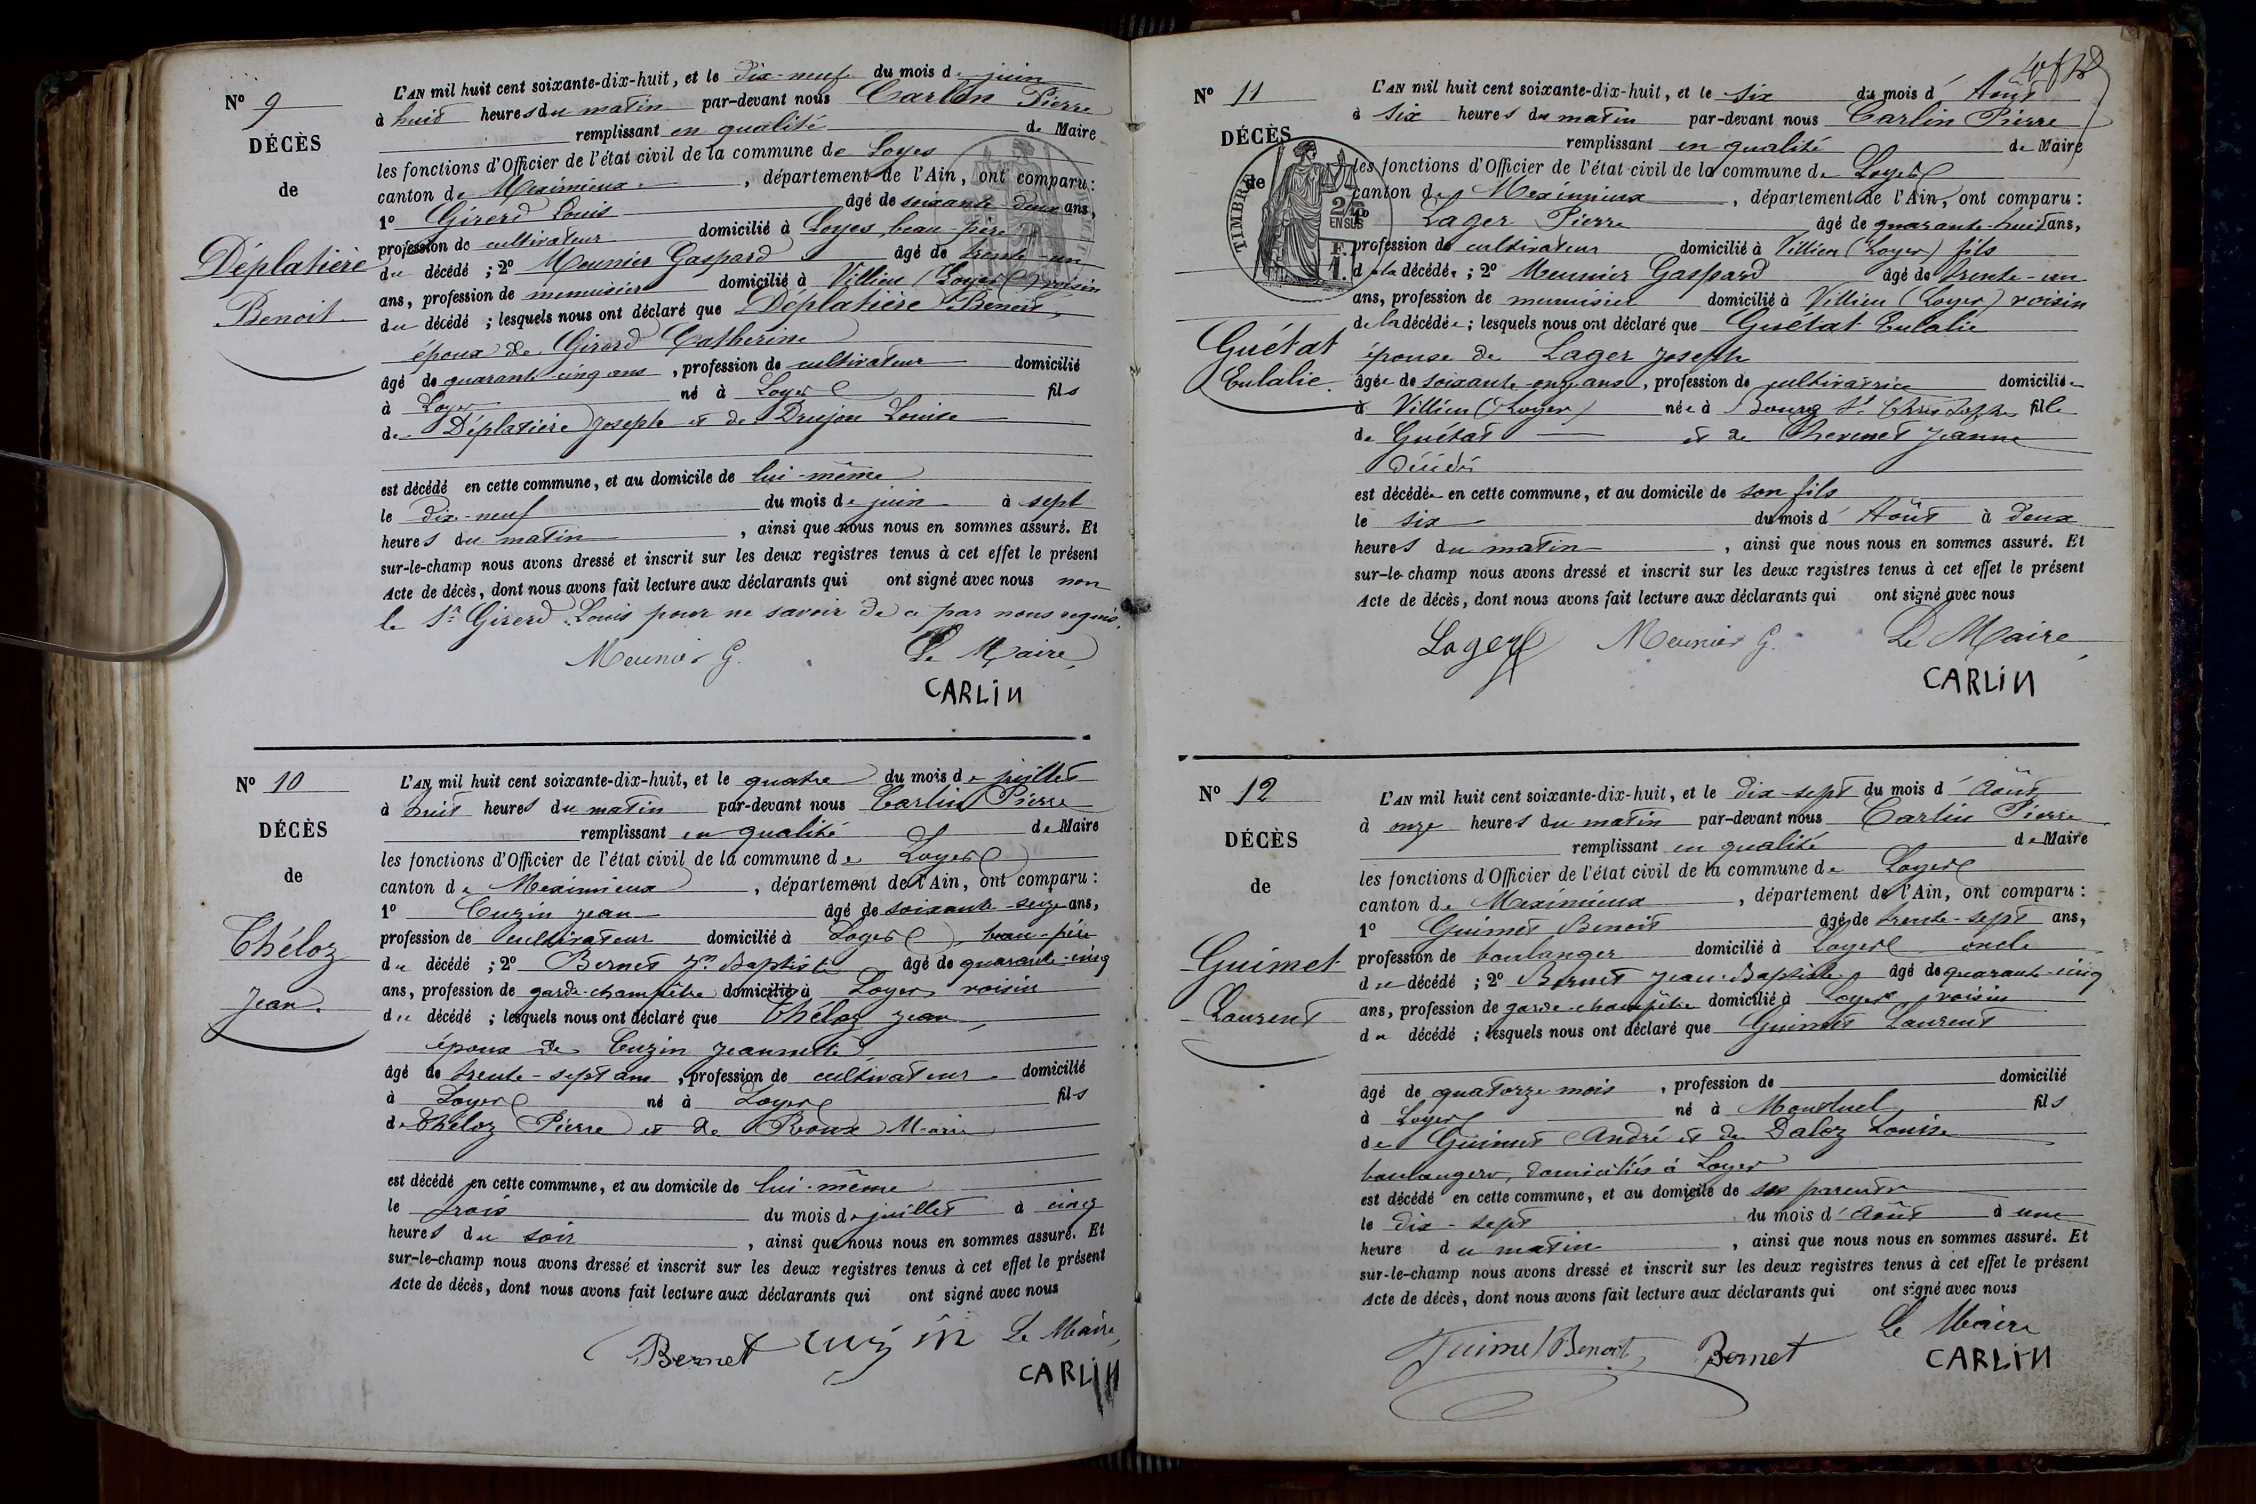 N° 9
DÉCÈS
de
Déplatière
Benoit
L'AN mil huit cent soixante-dix-huit, et le dix-neuf du mois de juin
à huit heures du matin par-devant nous Carlin Pierre
remplissant en qualité de Maire
les fonctions d'Officier de l'état civil de la commune de Loyes
canton de Meximieux, département de l'Ain, ont comparu :
1° Girerd Louis âgé de soixante-deux ans,
profession de cultivateur domicilié à Loyes, beau père
du décédé ; 2° Meunier Gaspard âgé de trente-un
ans, profession de menuisier domicilié à Villieu (Loyes) voisin
du décédé ; lesquels nous ont déclaré que Déplatière Benoit,
époux de Girerd Catherine
âgé de quarante-cinq ans, profession de cultivateur domicilié
à Loyes né à Loyes fils
de Déplatière Joseph et de Drujon Louise
est décédé en cette commune, et au domicile de lui-même
le dix-neuf du mois de juin à sept
heures du matin, ainsi que nous nous en sommes assuré. Et
sur-le-champ nous avons dressé et inscrit sur les deux registres tenus à cet effet le présent
Acte de décès, dont nous avons fait lecture aux déclarants qui ont signé avec nous non
le Sr Girerd Louis pour ne savoir de ce par nous requis.
Meunier G. Le Maire,
CARLIN
N° 10
DÉCÈS
de
Théloz
Jean.
L'AN mil huit cent soixante-dix-huit, et le quatre du mois de juillet
à huit heures du matin par-devant nous Carlin Pierre
remplissant en qualité de Maire
les fonctions d'Officier de l'état civil de la commune de Loyes
canton de Meximieux, département de l'Ain, ont comparu :
1° Cuzin Jean âgé de soixante-seize ans,
profession de cultivateur domicilié à Loyes, beau-père
du décédé ; 2° Bernet Jn Baptiste âgé de quarante-cinq
ans, profession de garde-champêtre domicilié à Loyes voisin
du décédé ; lesquels nous ont déclaré que Théloz Jean,
époux de Cuzin Jeannette
âgé de trente-sept ans, profession de cultivateur domicilié
à Loyes né à Loyes fils
de Théloz Pierre et de Roux Marie
est décédé en cette commune, et au domicile de lui-même
le trois du mois de juillet à cinq
heures du soir, ainsi que nous nous en sommes assuré. Et
sur-le-champ nous avons dressé et inscrit sur les deux registres tenus à cet effet le présent
Acte de décès, dont nous avons fait lecture aux déclarants qui ont signé avec nous
Bernet Cuzin Le Maire,
CARLIN
N° 11
DÉCÈS
de
TIMBRE
2/10
EN SUS
Guétat
Eulalie.
L'AN mil huit cent soixante-dix-huit, et le six du mois d'Août
à six heures du matin par-devant nous Carlin Pierre
remplissant en qualité de Maire
les fonctions d'Officier de l'état civil de la commune de Loyes
canton de Meximieux, département de l'Ain, ont comparu :
1° Lager Pierre âgé de quarante-huit ans,
profession de cultivateur domicilié à Villieu (Loyes) fils
de la décédée ; 2° Meunier Gaspard âgé de trente-un
ans, profession de menuisier domicilié à Villieu (Loyes) voisin
de la décédée ; lesquels nous ont déclaré que Guétat Eulalie
épouse de Lager Joseph
âgée de soixante-onze ans, profession de cultivatrice domiciliée
à Villieu (Loyes) née à Bourg St Christophe fille
de Guétat et de Chevenet Jeanne
décédés
est décédée en cette commune, et au domicile de son fils
le six du mois d'Août à deux
heures du matin, ainsi que nous nous en sommes assuré. Et
sur-le-champ nous avons dressé et inscrit sur les deux registres tenus à cet effet le présent
Acte de décès, dont nous avons fait lecture aux déclarants qui ont signé avec nous
Lager Meunier G. Le Maire,
CARLIN
N° 12
DÉCÈS
de
Guimet
Laurent
L'AN mil huit cent soixante-dix-huit, et le dix-sept du mois d'Août
à onze heures du matin par-devant nous Carlin Pierre
remplissant en qualité de Maire
les fonctions d'Officier de l'état civil de la commune de Loyes
canton de Meximieux, département de l'Ain, ont comparu :
1° Guimet Benoit âgé de trente-sept ans,
profession de boulanger domicilié à Loyes oncle
du décédé ; 2° Bernet Jean-Baptiste, âgé de quarante-cinq
ans, profession de garde-champêtre domicilié à Loyes, voisin
du décédé ; lesquels nous ont déclaré que Guimet Laurent
âgé de quatorze mois, profession de domicilié
à Loyes né à Montluel fils
de Guimet André et de Daloz Louise
boulangers, domiciliés à Loyes
est décédé en cette commune, et au domicile de ses parents
le dix-sept du mois d'Août à une
heure du matin, ainsi que nous nous en sommes assuré. Et
sur-le-champ nous avons dressé et inscrit sur les deux registres tenus à cet effet le présent
Acte de décès, dont nous avons fait lecture aux déclarants qui ont signé avec nous
Guimet Benoit Bernet Le Maire
CARLIN